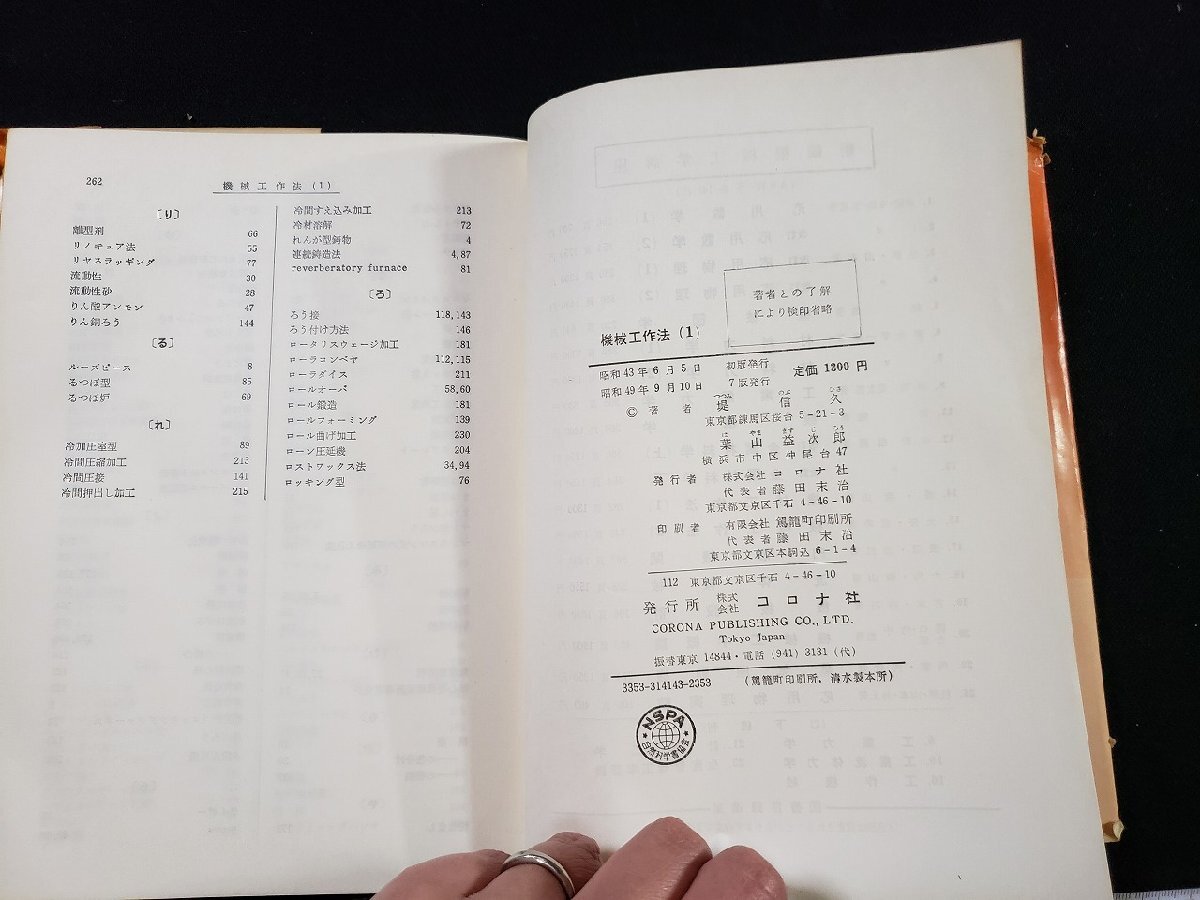 262
機械工作法(1)
〔り〕
離型剤 66
リノキュア法 55
リヤスラッギング 77
流動性 30
流動性砂 28
りん酸アンモン 47
りん銅ろう 144
〔る〕
ルーズピース 8
るつぼ型 85
るつぼ炉 69
〔れ〕
冷加圧室型 89
冷間圧縮加工 213
冷間圧接 141
冷間押出し加工 215
冷間すえ込み加工 213
冷材溶解 72
れんが型鋳物 4
連続鋳造法 4,87
reverberatory furnace 81
〔ろ〕
ろう接 118,143
ろう付け方法 146
ロータリスウェージ加工 181
ローラコンベヤ 112,115
ローラダイス 211
ロールオーバ 58,60
ロール鍛造 181
ロールフォーミング 139
ロール曲げ加工 230
ローン圧延機 204
ロストワックス法 34,94
ロッキング型 76
著者との了解
により検印省略
機械工作法(1)
昭和43年6月5日 初版発行
昭和49年9月10日 7版発行
定価 1300円
つつみ のぶ ひさ
© 著者 堤 信久
東京都練馬区桜台5-21-3
は やま ます じ ろう
葉山益次郎
横浜市中区仲尾台47
発行者 株式会社 コロナ社
代表者 藤田末治
東京都文京区千石4-46-10
印刷者 有限会社 駕籠町印刷所
代表者 藤田末治
東京都文京区本駒込6-1-4
112 東京都文京区千石4-46-10
発行所 株式会社 コロナ社
CORONA PUBLISHING CO., LTD.
Tokyo Japan
振替東京14844・電話(941)3131(代)
3353-314143-2353 (駕籠町印刷所、清水製本所)
NSPA
自然科学書協会